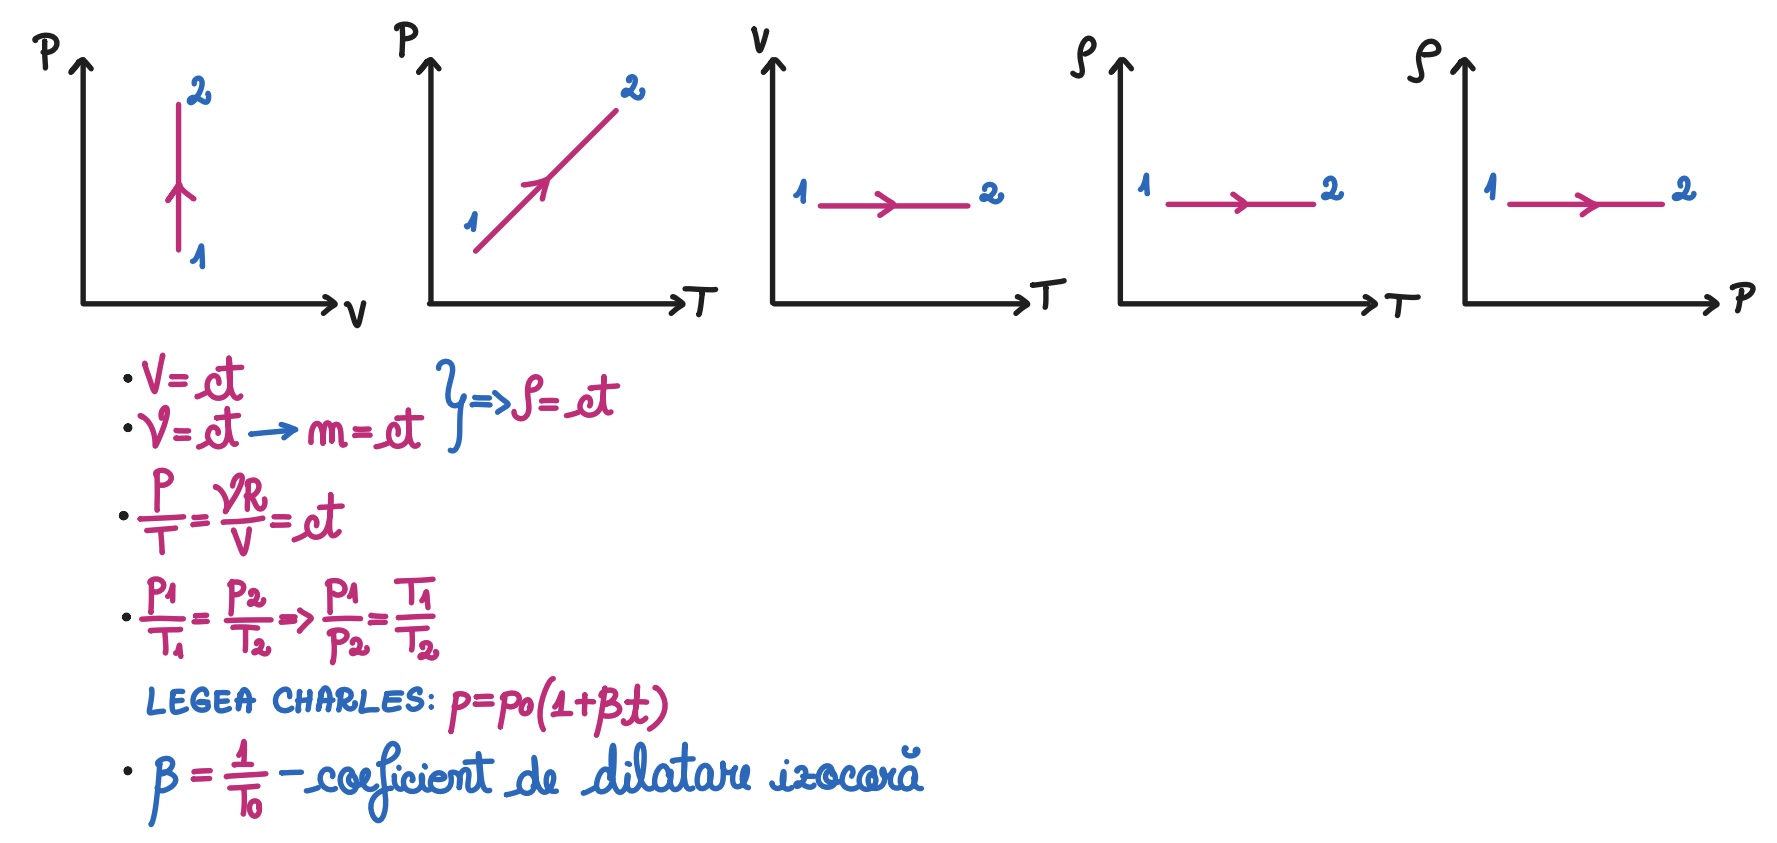 P 2 1 V
P 2 1 T
V 1 2 T
ρ 1 2 T
ρ 1 2 P
• V = ct
• ν = ct → m = ct } => ρ = ct
• P/T = νR/V = ct
• p1/T1 = p2/T2 => p1/p2 = T1/T2
LEGEA CHARLES: p = p0(1+βt)
• β = 1/T0 - coeficient de dilatare izocoră